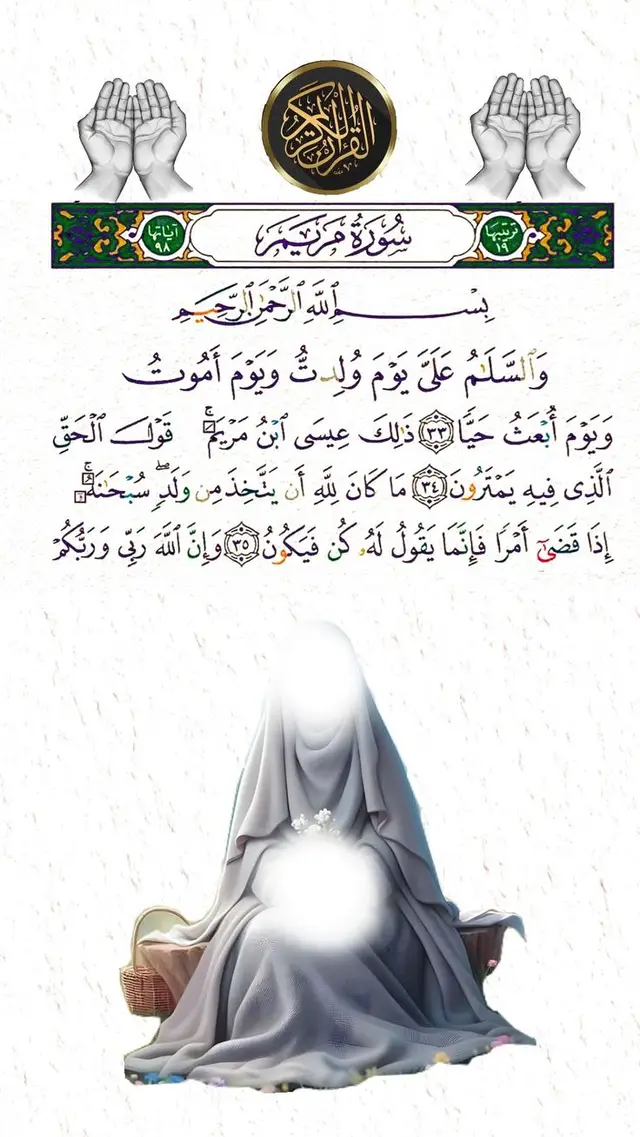 القرآن الكريم
ترتيبها ١٩ سُورَةُ مَرْيَمَ آياتها ٩٨
بِسْمِ ٱللَّهِ ٱلرَّحْمَٰنِ ٱلرَّحِيمِ
وَٱلسَّلَٰمُ عَلَىَّ يَوْمَ وُلِدتُّ وَيَوْمَ أَمُوتُ
وَيَوْمَ أُبْعَثُ حَيًّا ٣٣ ذَٰلِكَ عِيسَى ٱبْنُ مَرْيَمَ ۚ قَوْلَ ٱلْحَقِّ
ٱلَّذِى فِيهِ يَمْتَرُونَ ٣٤ مَا كَانَ لِلَّهِ أَن يَتَّخِذَ مِن وَلَدٍۢ ۖ سُبْحَٰنَهُۥٓ ۚ
إِذَا قَضَىٰٓ أَمْرًۭا فَإِنَّمَا يَقُولُ لَهُۥ كُن فَيَكُونُ ٣٥ وَإِنَّ ٱللَّهَ رَبِّى وَرَبُّكُمْ